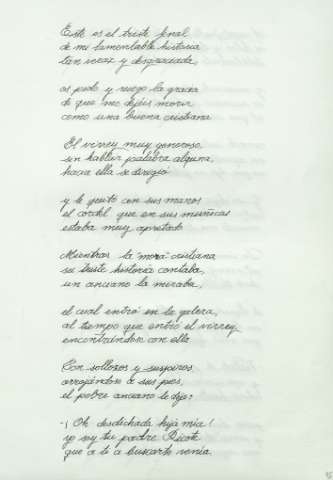 Este es el triste final
de mi lamentable historia
tan veraz y desgraciada,
os pido y ruego la gracia
de que me dejéis morir
como una buena cristiana
El virrey muy generoso,
sin hablar palabra alguna,
hacia ella se dirigió
y le quitó con sus manos
el cordel que en sus muñecas
estaba muy apretado
Mientras la "mora" cristiana
su triste historia contaba,
un anciano la miraba,
el cual entró en la galera,
al tiempo que entró el virrey
encontrándose con ella
Con sollozos y suspiros
arrojándose a sus pies,
el pobre anciano le dijo:
-¡Oh desdichada hija mía!
yo soy tu padre Ricote
que a ti a buscarte venía.